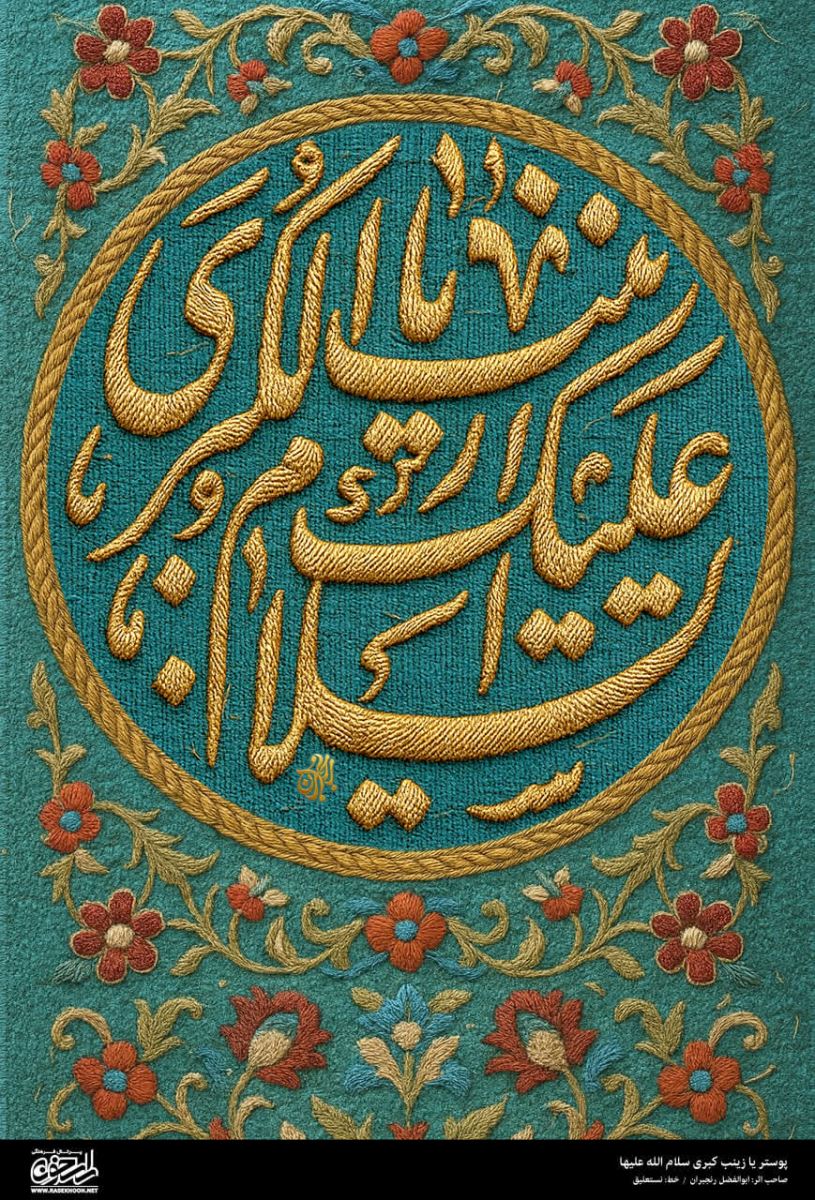 السلام
علیک
یا زینب الکبری
پوستر یا زینب کبری سلام الله علیها
صاحب اثر: ابوالفضل رنجبران / خط: نستعلیق
پرتال فرهنگی
راسخون
WWW.RASEKHOON.NET